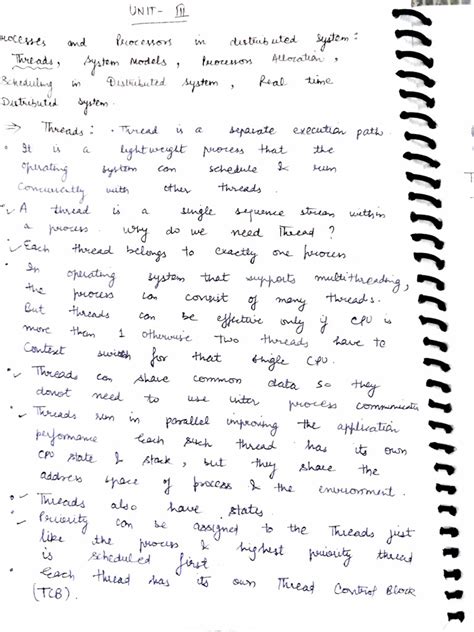 UNIT- III
rocesses and Processors in distributed system:
Threads, System Models, Processor Allocation,
Scheduling in Distributed system, Real time
Distributed System.
⇒ Threads: • Thread is a separate execution path.
• It is a lightweight process that the
operating system can schedule & run
concurrently with other threads.
• A thread is a single sequence stream within
a process. Why do we need Thread?
• Each thread belongs to exactly one process
In operating system that supports multithreading,
the process can consist of many threads.
But threads can be effective only if CPU is
more than 1 otherwise two threads have to
Context switch for that single CPU.
• Threads can share common data so they
donot need to use inter process communication
• Threads run in parallel improving the application
performance. Each such thread has its own
CPU state & stack, but they share the
address space of process & the environment.
• Threads also have states.
• Priority can be assigned to the Threads just
like the process & highest priority thread
is scheduled first.
• Each thread has its own Thread Control Block
(TCB).